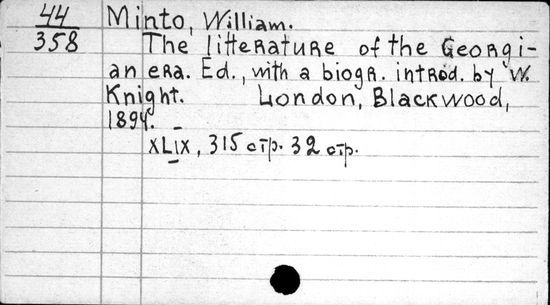 44
358
Minto, William.
The litterature of the Georgi-
an era. Ed., with a biogr. introd. by W.
Knight. London, Blackwood,
1894.
XLIX, 315 стр. 32 стр.